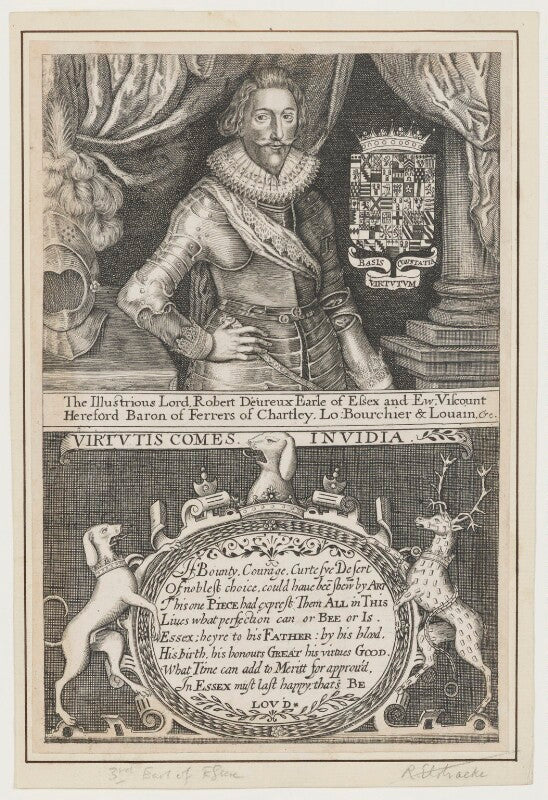 BASIS CONSTATIA
VIRTVTUM
The Illustrious Lord, Robert Deureux Earle of Essex and Ew: Viscount
Hereford Baron of Ferrers of Chartley. Lo: Bourchier & Louain, &c.
VIRTVTIS COMES INVIDIA.
If Bounty, Courage, Curtesye Desert
Of noblest choice, could haue beē shew by ART
This one PIECE had exprest Them ALL in THIS
Liues what perfection can or BEE or IS.
ESSEX: heyre to his FATHER: by his blood,
His birth, his honours GREAT his virtues GOOD.
What Time can add to Meritt for approu'd,
In ESSEX must last happy, that's BE
LOV'D.
3rd Earl of Essex
R Elstracke